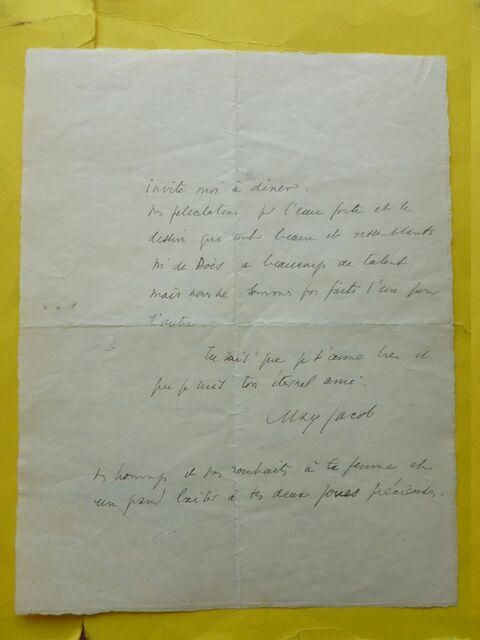 invite moi à diner.
Mes félicitations pr l'eau forte et le
dessin qui sont beaux et ressemblants
Mr de Boès a beaucoup de talent
mais nous ne sommes pas faits l'un pour
l'autre.
Tu sais que je t'aime bien et
que je suis ton éternel ami.
Max Jacob
Mes hommages et mes souhaits à ta femme et
un grand baiser à tes deux joues précieuses.